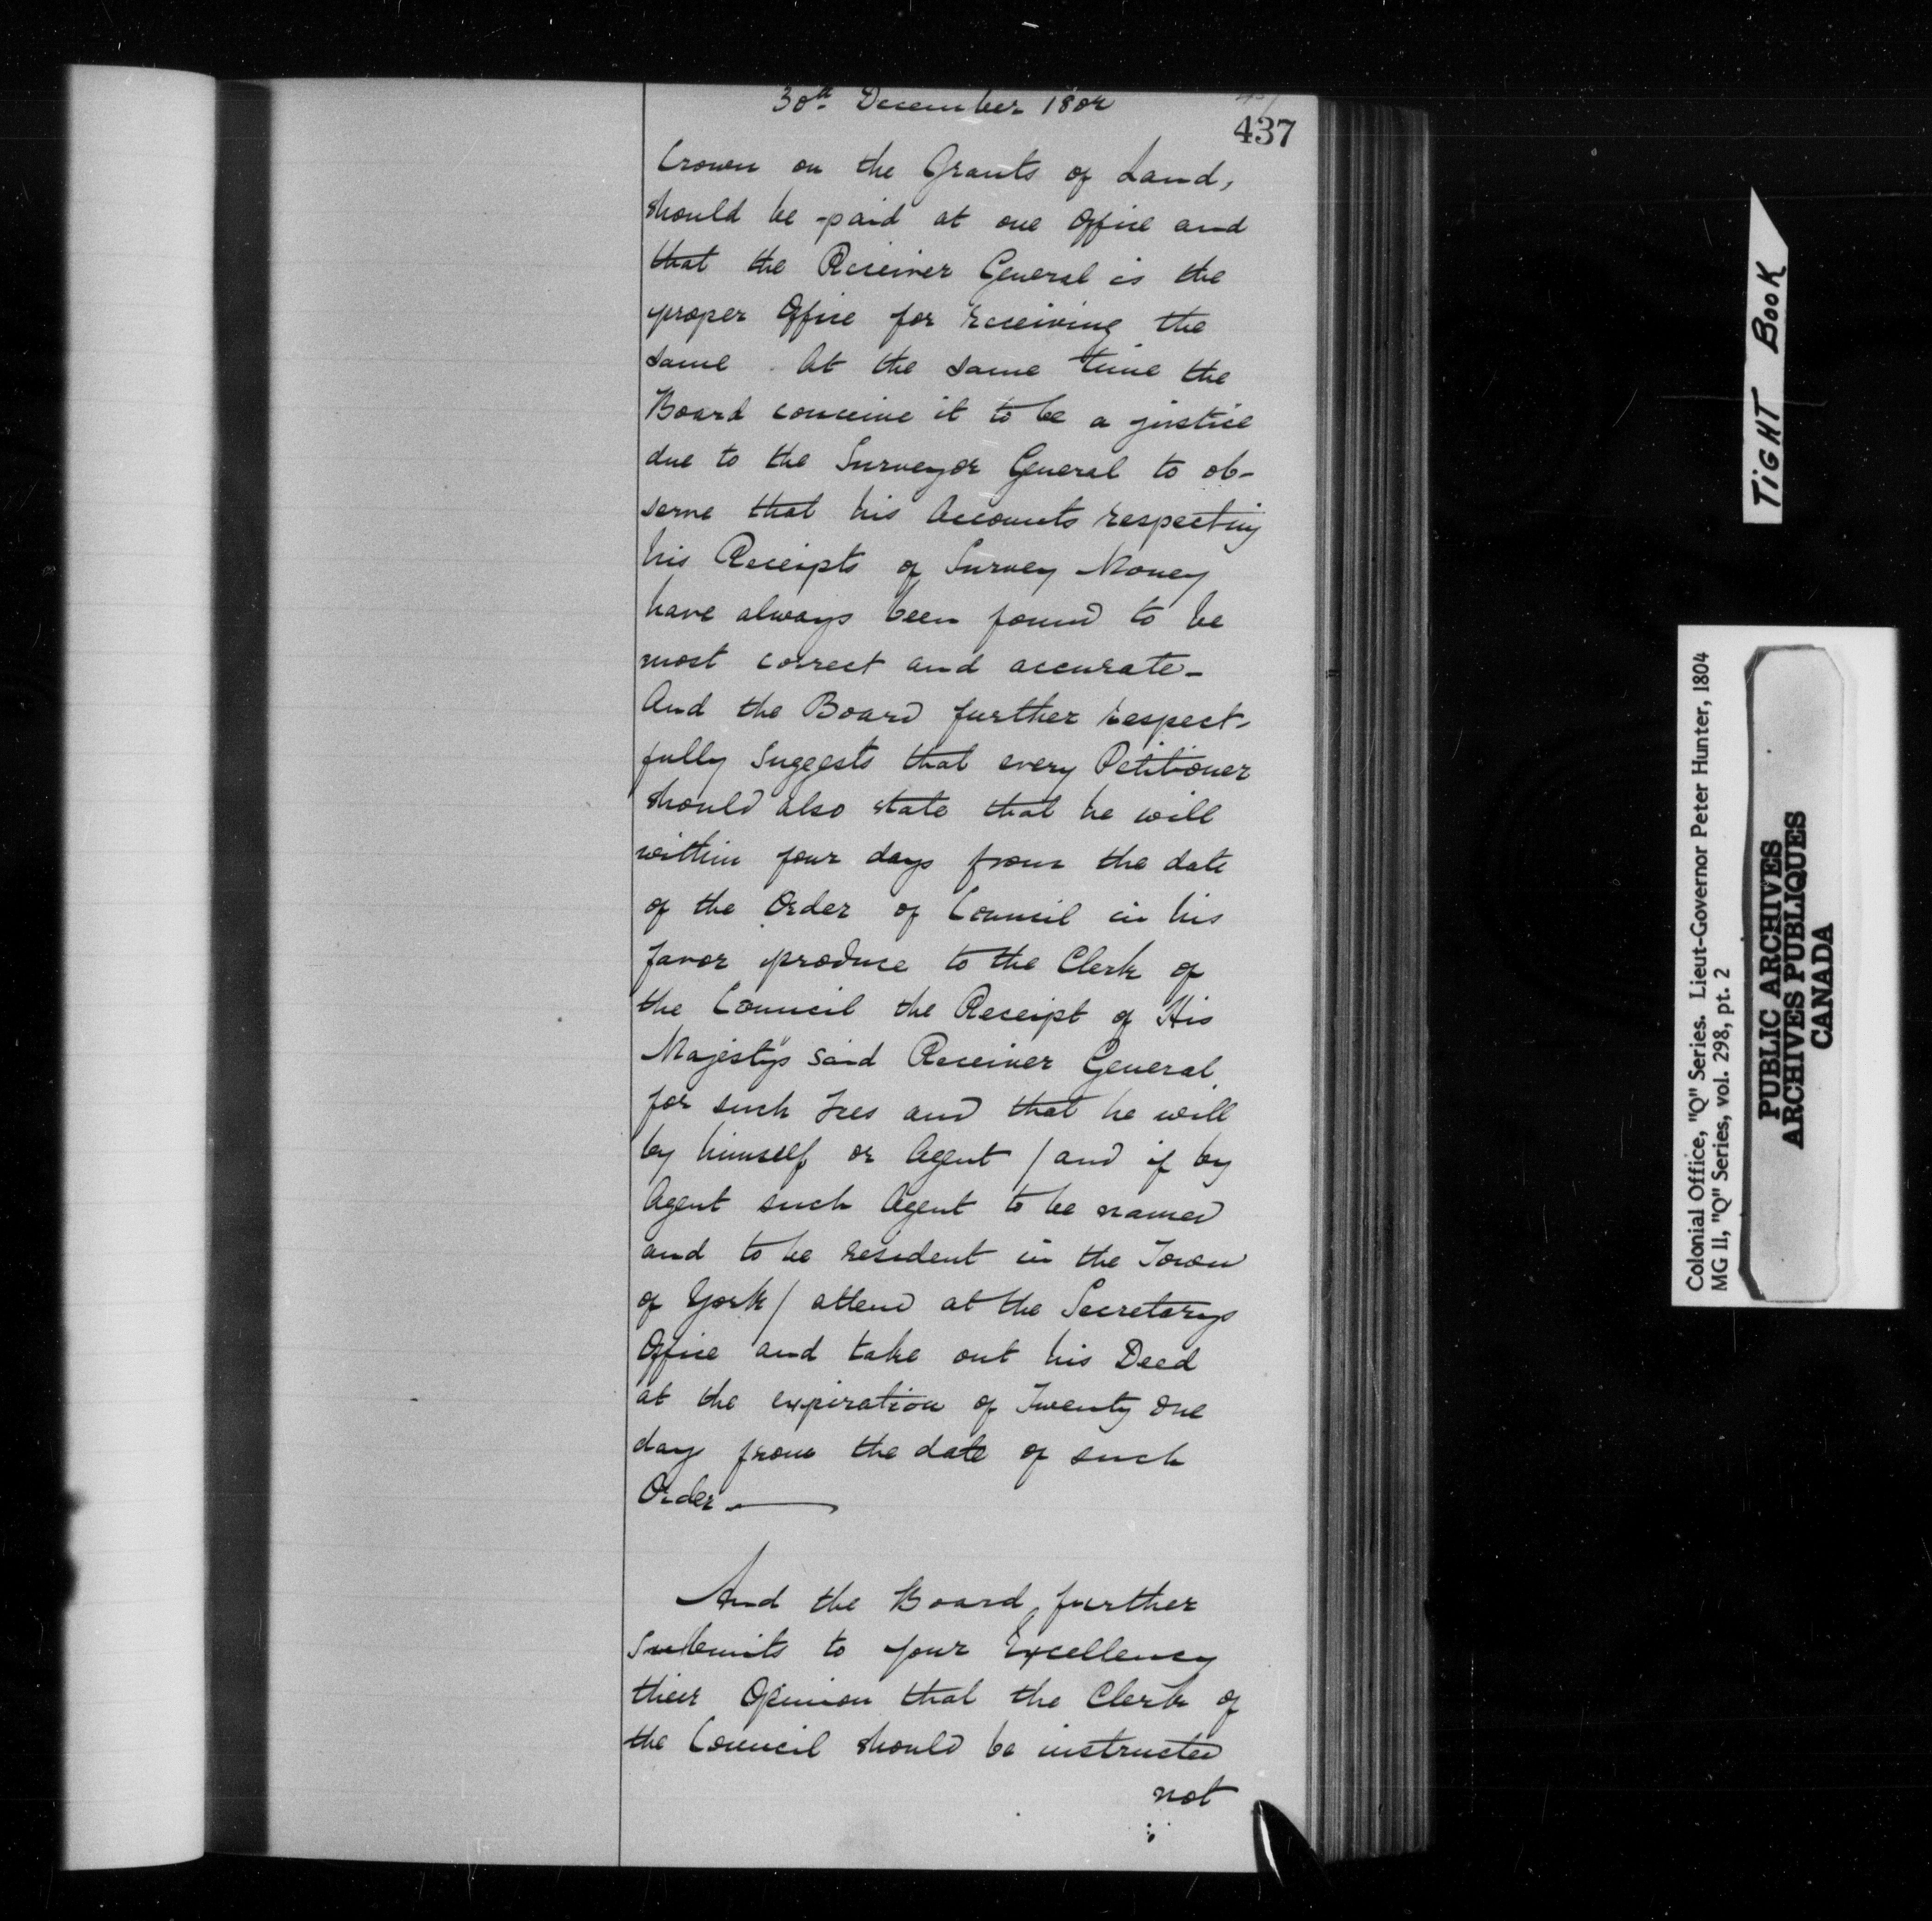 30th December 1802
437
Crown on the Grants of Land,
should be paid at one Office and
that the Receiver General is the
proper Office for receiving the
same. At the same time the
Board conceive it to be a justice
due to the Surveyor General to ob-
serve that his Accounts respecting
his Receipts of Survey Money
have always been found to be
most correct and accurate-
And the Board further respect-
fully suggests that every Petitioner
should also state that he will
within four days from the date
of the Order of Council in his
favor produce to the Clerk of
the Council the Receipt of His
Majesty's said Receiver General
for such Fees and that he will
by himself or Agent / and if by
Agent such Agent to be named
and to be resident in the Town
of York / attend at the Secretarys
Office and take out his Deed
at the expiration of Twenty One
days from the date of such
Order.
And the Board further
submits to your Excellency
their Opinion that the Clerk of
the Council should be instructed
not
TIGHT BOOK
Colonial Office, "Q" Series. Lieut-Governor Peter Hunter, 1804
MG 11, "Q" Series, vol. 298, pt. 2
PUBLIC ARCHIVES
ARCHIVES PUBLIQUES
CANADA